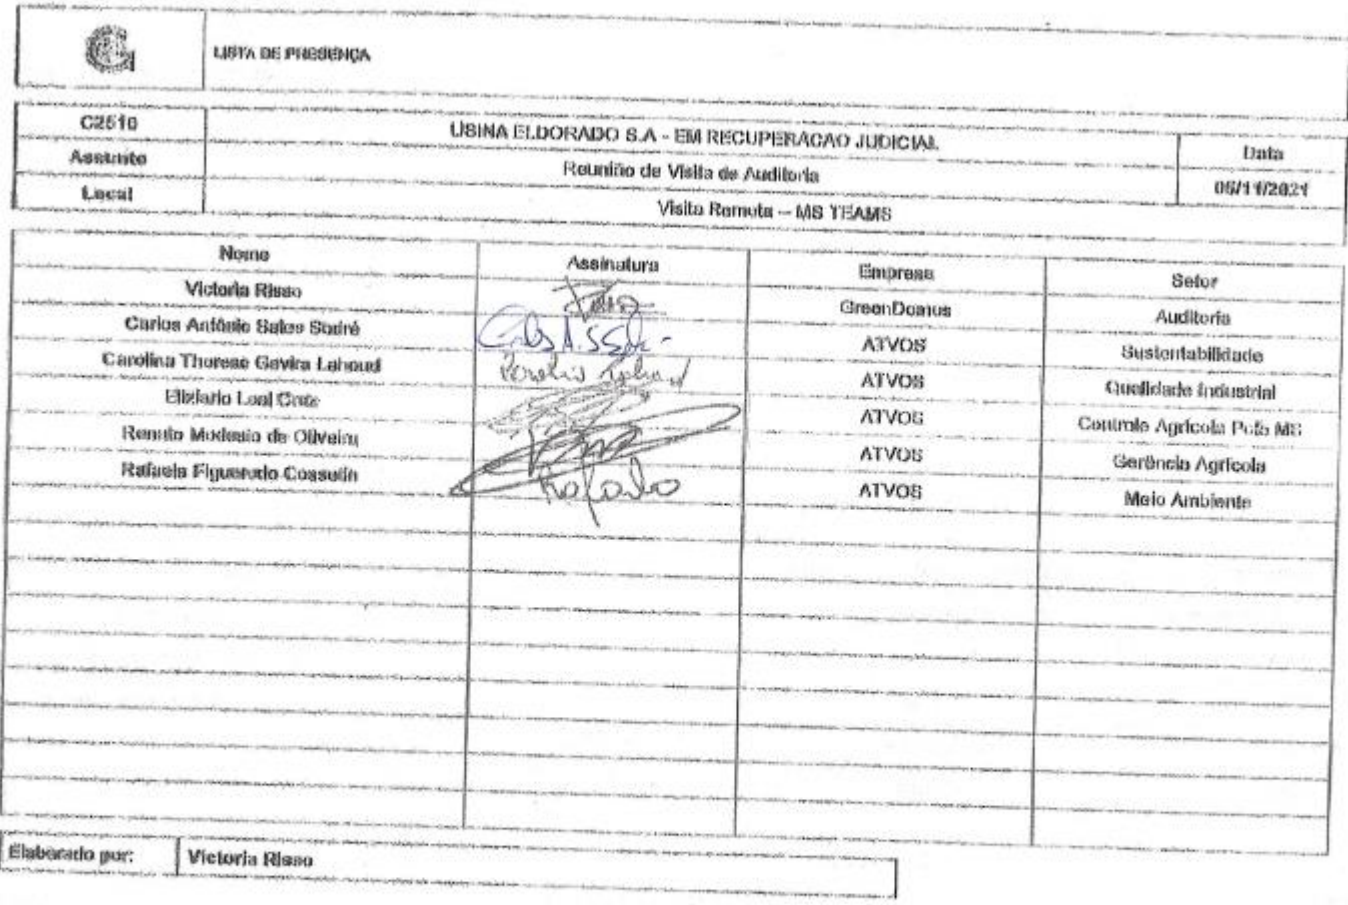 LISTA DE PRESENÇA
C2510
USINA ELDORADO S.A - EM RECUPERACAO JUDICIAL
Data
Assunto
Reunião de Visita de Auditoria
05/11/2021
Local
Visita Remota – MS TEAMS
Nome Assinatura Empresa Setor
Victoria Risso GreenDomus Auditoria
Carlos Antônio Sales Sodré ATVOS Sustentabilidade
Carolina Therese Gavira Lahoud ATVOS Qualidade Industrial
Eliziario Leal ATVOS Controle Agrícola Polo MS
Renato Modesto de Oliveira ATVOS Gerência Agrícola
Rafaela Figueredo Rafaela ATVOS Meio Ambiente
Elaborado por: Victoria Risso